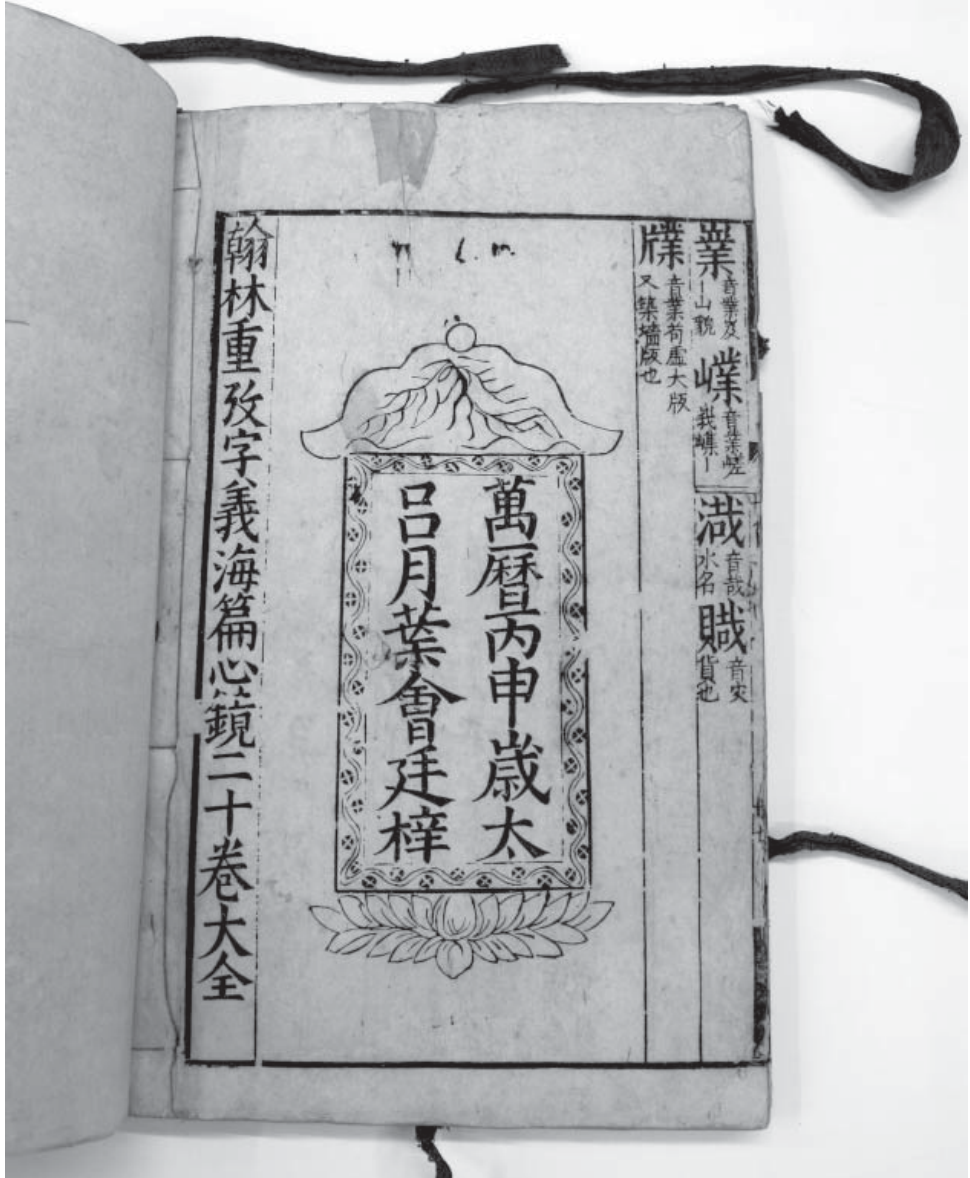 嶪音業岌｜山貌嶫音業嵯峩嶫｜渽音哉水名賳音灾貨也
音業荷虗大版又築墻版也
萬曆丙申歲太
呂月葉會廷梓
翰林重攷字義海篇心鏡二十卷大全